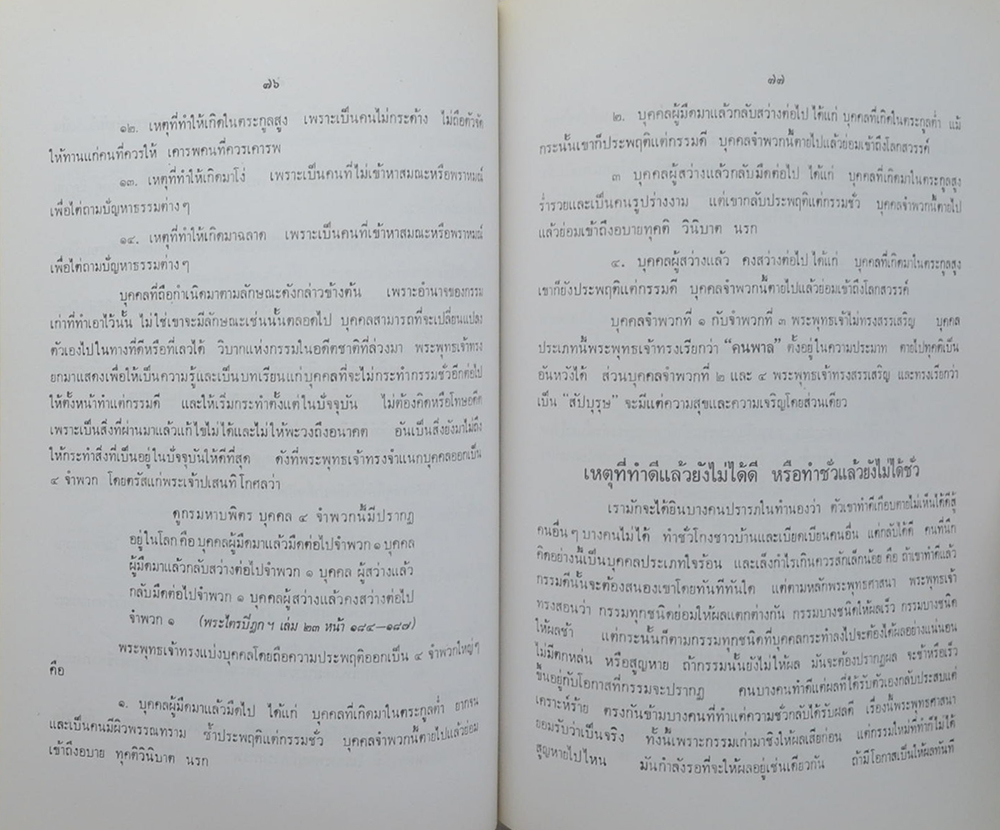 ๗๖
๑๒. เหตุที่ทำให้เกิดในตระกูลสูง เพราะเป็นคนไม่กระด้าง ไม่ถือตัวจัด
ให้ทานแก่คนที่ควรให้ เคารพคนที่ควรเคารพ
๑๓. เหตุที่ทำให้เกิดมาโง่ เพราะเป็นคนที่ไม่เข้าหาสมณะหรือพราหมณ์
เพื่อไต่ถามปัญหาธรรมต่าง ๆ
๑๔. เหตุที่ทำให้เกิดมาฉลาด เพราะเป็นคนที่เข้าหาสมณะหรือพราหมณ์
เพื่อไต่ถามปัญหาธรรมต่าง ๆ
บุคคลที่ถือกำเนิดมาตามลักษณะดังกล่าวข้างต้น เพราะอำนาจของกรรม
เก่าที่ทำเอาไว้นั้น ไม่ใช่เขาจะมีลักษณะเช่นนั้นตลอดไป บุคคลสามารถที่จะเปลี่ยนแปลง
ตัวเองไปในทางที่ดีหรือที่เลวได้ วิบากแห่งกรรมในอดีตชาติที่ล่วงมา พระพุทธเจ้าทรง
ยกมาแสดงเพื่อให้เป็นความรู้และเป็นบทเรียนแก่บุคคลที่จะไม่กระทำกรรมชั่วอีกต่อไป
ให้ตั้งหน้าทำแต่กรรมดี และให้เริ่มกระทำตั้งแต่ในปัจจุบัน ไม่ต้องคิดหรือโทษอดีต
เพราะเป็นสิ่งที่ผ่านมาแล้วแก้ไขไม่ได้และไม่ให้พะวงถึงอนาคต อันเป็นสิ่งยังมาไม่ถึง
ให้กระทำสิ่งที่เป็นอยู่ในปัจจุบันให้ดีที่สุด ดังที่พระพุทธเจ้าทรงจำแนกบุคคลออกเป็น
๔ จำพวก โดยตรัสแก่พระเจ้าปเสนทิโกศลว่า
ดูกรมหาบพิตร บุคคล ๔ จำพวกนี้มีปรากฏ
อยู่ในโลก คือ บุคคลผู้มืดมาแล้วมืดต่อไปจำพวก ๑ บุคคล
ผู้มืดมาแล้วกลับสว่างต่อไปจำพวก ๑ บุคคล ผู้สว่างแล้ว
กลับมืดต่อไปจำพวก ๑ บุคคลผู้สว่างแล้วคงสว่างต่อไป
จำพวก ๑ (พระไตรปิฎก ฯ เล่ม ๒๓ หน้า ๑๘๔–๑๘๗)
พระพุทธเจ้าทรงแบ่งบุคคลโดยถือความประพฤติออกเป็น ๔ จำพวกใหญ่ ๆ
คือ
๑. บุคคลผู้มืดมาแล้วมืดไป ได้แก่ บุคคลที่เกิดมาในตระกูลต่ำ ยากจน
และเป็นคนมีผิวพรรณทราม ซ้ำประพฤติแต่กรรมชั่ว บุคคลจำพวกนี้ตายไปแล้วย่อม
เข้าถึงอบาย ทุคติวินิบาต นรก
๗๗
๒. บุคคลผู้มืดมาแล้วกลับสว่างต่อไป ได้แก่ บุคคลที่เกิดในตระกูลต่ำ แม้
กระนั้นเขาก็ประพฤติแต่กรรมดี บุคคลจำพวกนี้ตายไปแล้วย่อมเข้าถึงโลกสวรรค์
๓ บุคคลผู้สว่างแล้วกลับมืดต่อไป ได้แก่ บุคคลที่เกิดมาในตระกูลสูง
ร่ำรวยและเป็นคนรูปร่างงาม แต่เขากลับประพฤติแต่กรรมชั่ว บุคคลจำพวกนี้ตายไป
แล้วย่อมเข้าถึงอบายทุคติ วินิบาต นรก
๔. บุคคลผู้สว่างแล้ว คงสว่างต่อไป ได้แก่ บุคคลที่เกิดมาในตระกูลสูง
เขาก็ยังประพฤติแต่กรรมดี บุคคลจำพวกนี้ตายไปแล้วย่อมเข้าถึงโลกสวรรค์
บุคคลจำพวกที่ ๑ กับจำพวกที่ ๓ พระพุทธเจ้าไม่ทรงสรรเสริญ บุคคล
ประเภทนี้พระพุทธเจ้าทรงเรียกว่า “คนพาล” ตั้งอยู่ในความประมาท ตายไปทุคติเป็น
อันหวังได้ ส่วนบุคคลจำพวกที่ ๒ และ ๔ พระพุทธเจ้าทรงสรรเสริญ และทรงเรียกว่า
เป็น “สัปบุรุษ” จะมีแต่ความสุขและความเจริญโดยส่วนเดียว
เหตุที่ทำดีแล้วยังไม่ได้ดี หรือทำชั่วแล้วยังไม่ได้ชั่ว
เรามักจะได้ยินบางคนปรารภในทำนองว่า ตัวเขาทำดีเกือบตายไม่เห็นได้ดีสู้
คนอื่น ๆ บางคนไม่ได้ ทำชั่วโกงชาวบ้านและเบียดเบียนคนอื่น แต่กลับได้ดี คนที่นึก
คิดอย่างนี้เป็นบุคคลประเภทใจร้อน และเล็งกำไรเกินควรสักเล็กน้อย คือ ถ้าเขาทำดีแล้ว
กรรมดีนั้นจะต้องสนองเขาโดยทันทีทันใด แต่ตามหลักพระพุทธศาสนา พระพุทธเจ้า
ทรงสอนว่า กรรมทุกชนิดย่อมให้ผลแตกต่างกัน กรรมบางชนิดให้ผลเร็ว กรรมบางชนิด
ให้ผลช้า แต่กระนั้นก็ตามกรรมทุกชนิดที่บุคคลกระทำลงไปจะต้องได้ผลอย่างแน่นอน
ไม่มีตกหล่น หรือสูญหาย ถ้ากรรมนั้นยังไม่ให้ผล มันจะต้องปรากฏผล จะช้าหรือเร็ว
ขึ้นอยู่กับโอกาสที่กรรมจะปรากฏ คนบางคนทำดีแต่ผลที่ได้รับตัวเองกลับประสบแต่
เคราะห์ร้าย ตรงกันข้ามบางคนที่ทำแต่ความชั่วกลับได้รับผลดี เรื่องนี้พระพุทธศาสนา
ยอมรับว่าเป็นจริง ทั้งนี้เพราะกรรมเก่ามาชิงให้ผลเสียก่อน แต่กรรมใหม่ที่ทำก็ไม่ได้
สูญหายไปไหน มันกำลังรอที่จะให้ผลอยู่เช่นเดียวกัน ถ้ามีโอกาสเป็นให้ผลทันที